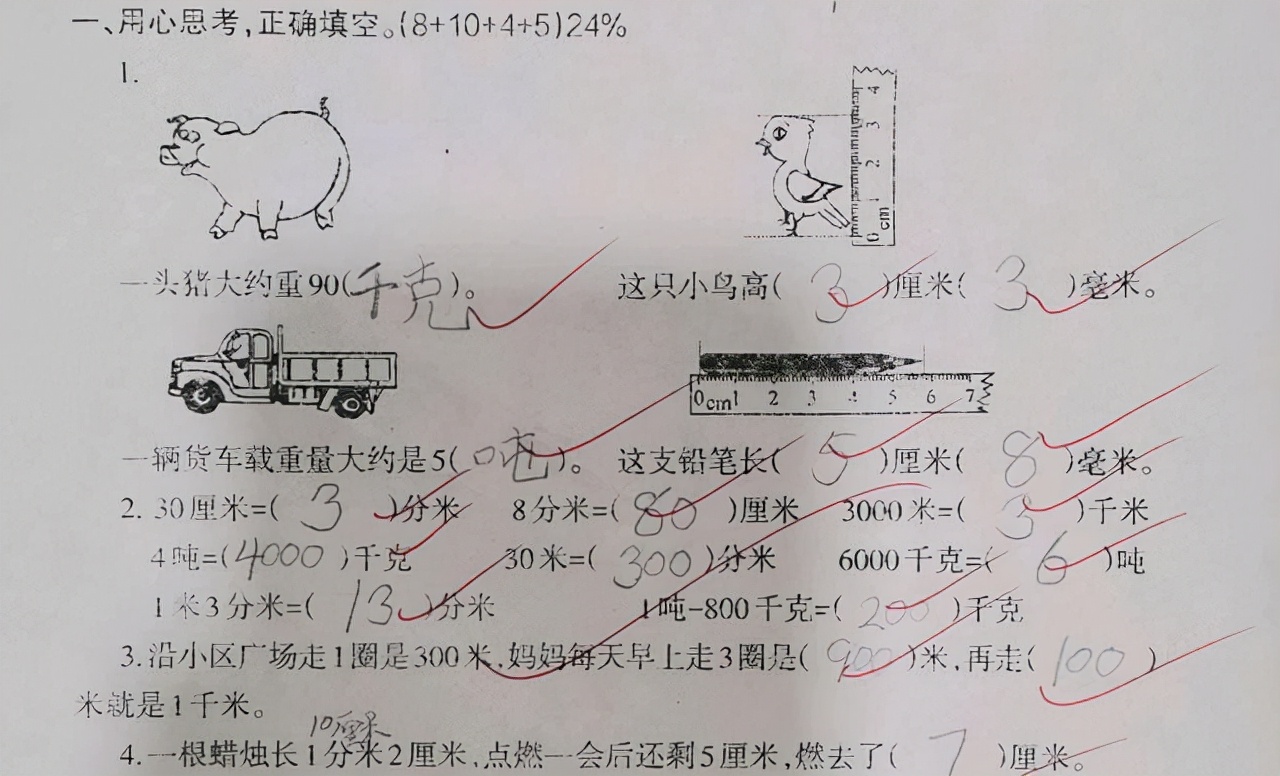 一、用心思考,正确填空。(8+10+4+5)24%
1.
4
3
2
1
0 cm
一头猪大约重90(千克)。 这只小鸟高( 3 )厘米( 3 )毫米。
0 cm 1 2 3 4 5 6 7
一辆货车载重量大约是5( 吨 )。 这支铅笔长( 5 )厘米( 8 )毫米。
2. 30厘米=( 3 )分米 8分米=( 80 )厘米 3000米=( 3 )千米
4吨=(4000)千克 30米=( 300 )分米 6000千克=( 6 )吨
1米3分米=( 13 )分米 1吨-800千克=( 200 )千克
3.沿小区广场走1圈是300米,妈妈每天早上走3圈是( 900 )米,再走( 100 )
米就是1千米。
10厘米
4.一根蜡烛长1分米2厘米,点燃一会后还剩5厘米,燃去了( 7 )厘米。